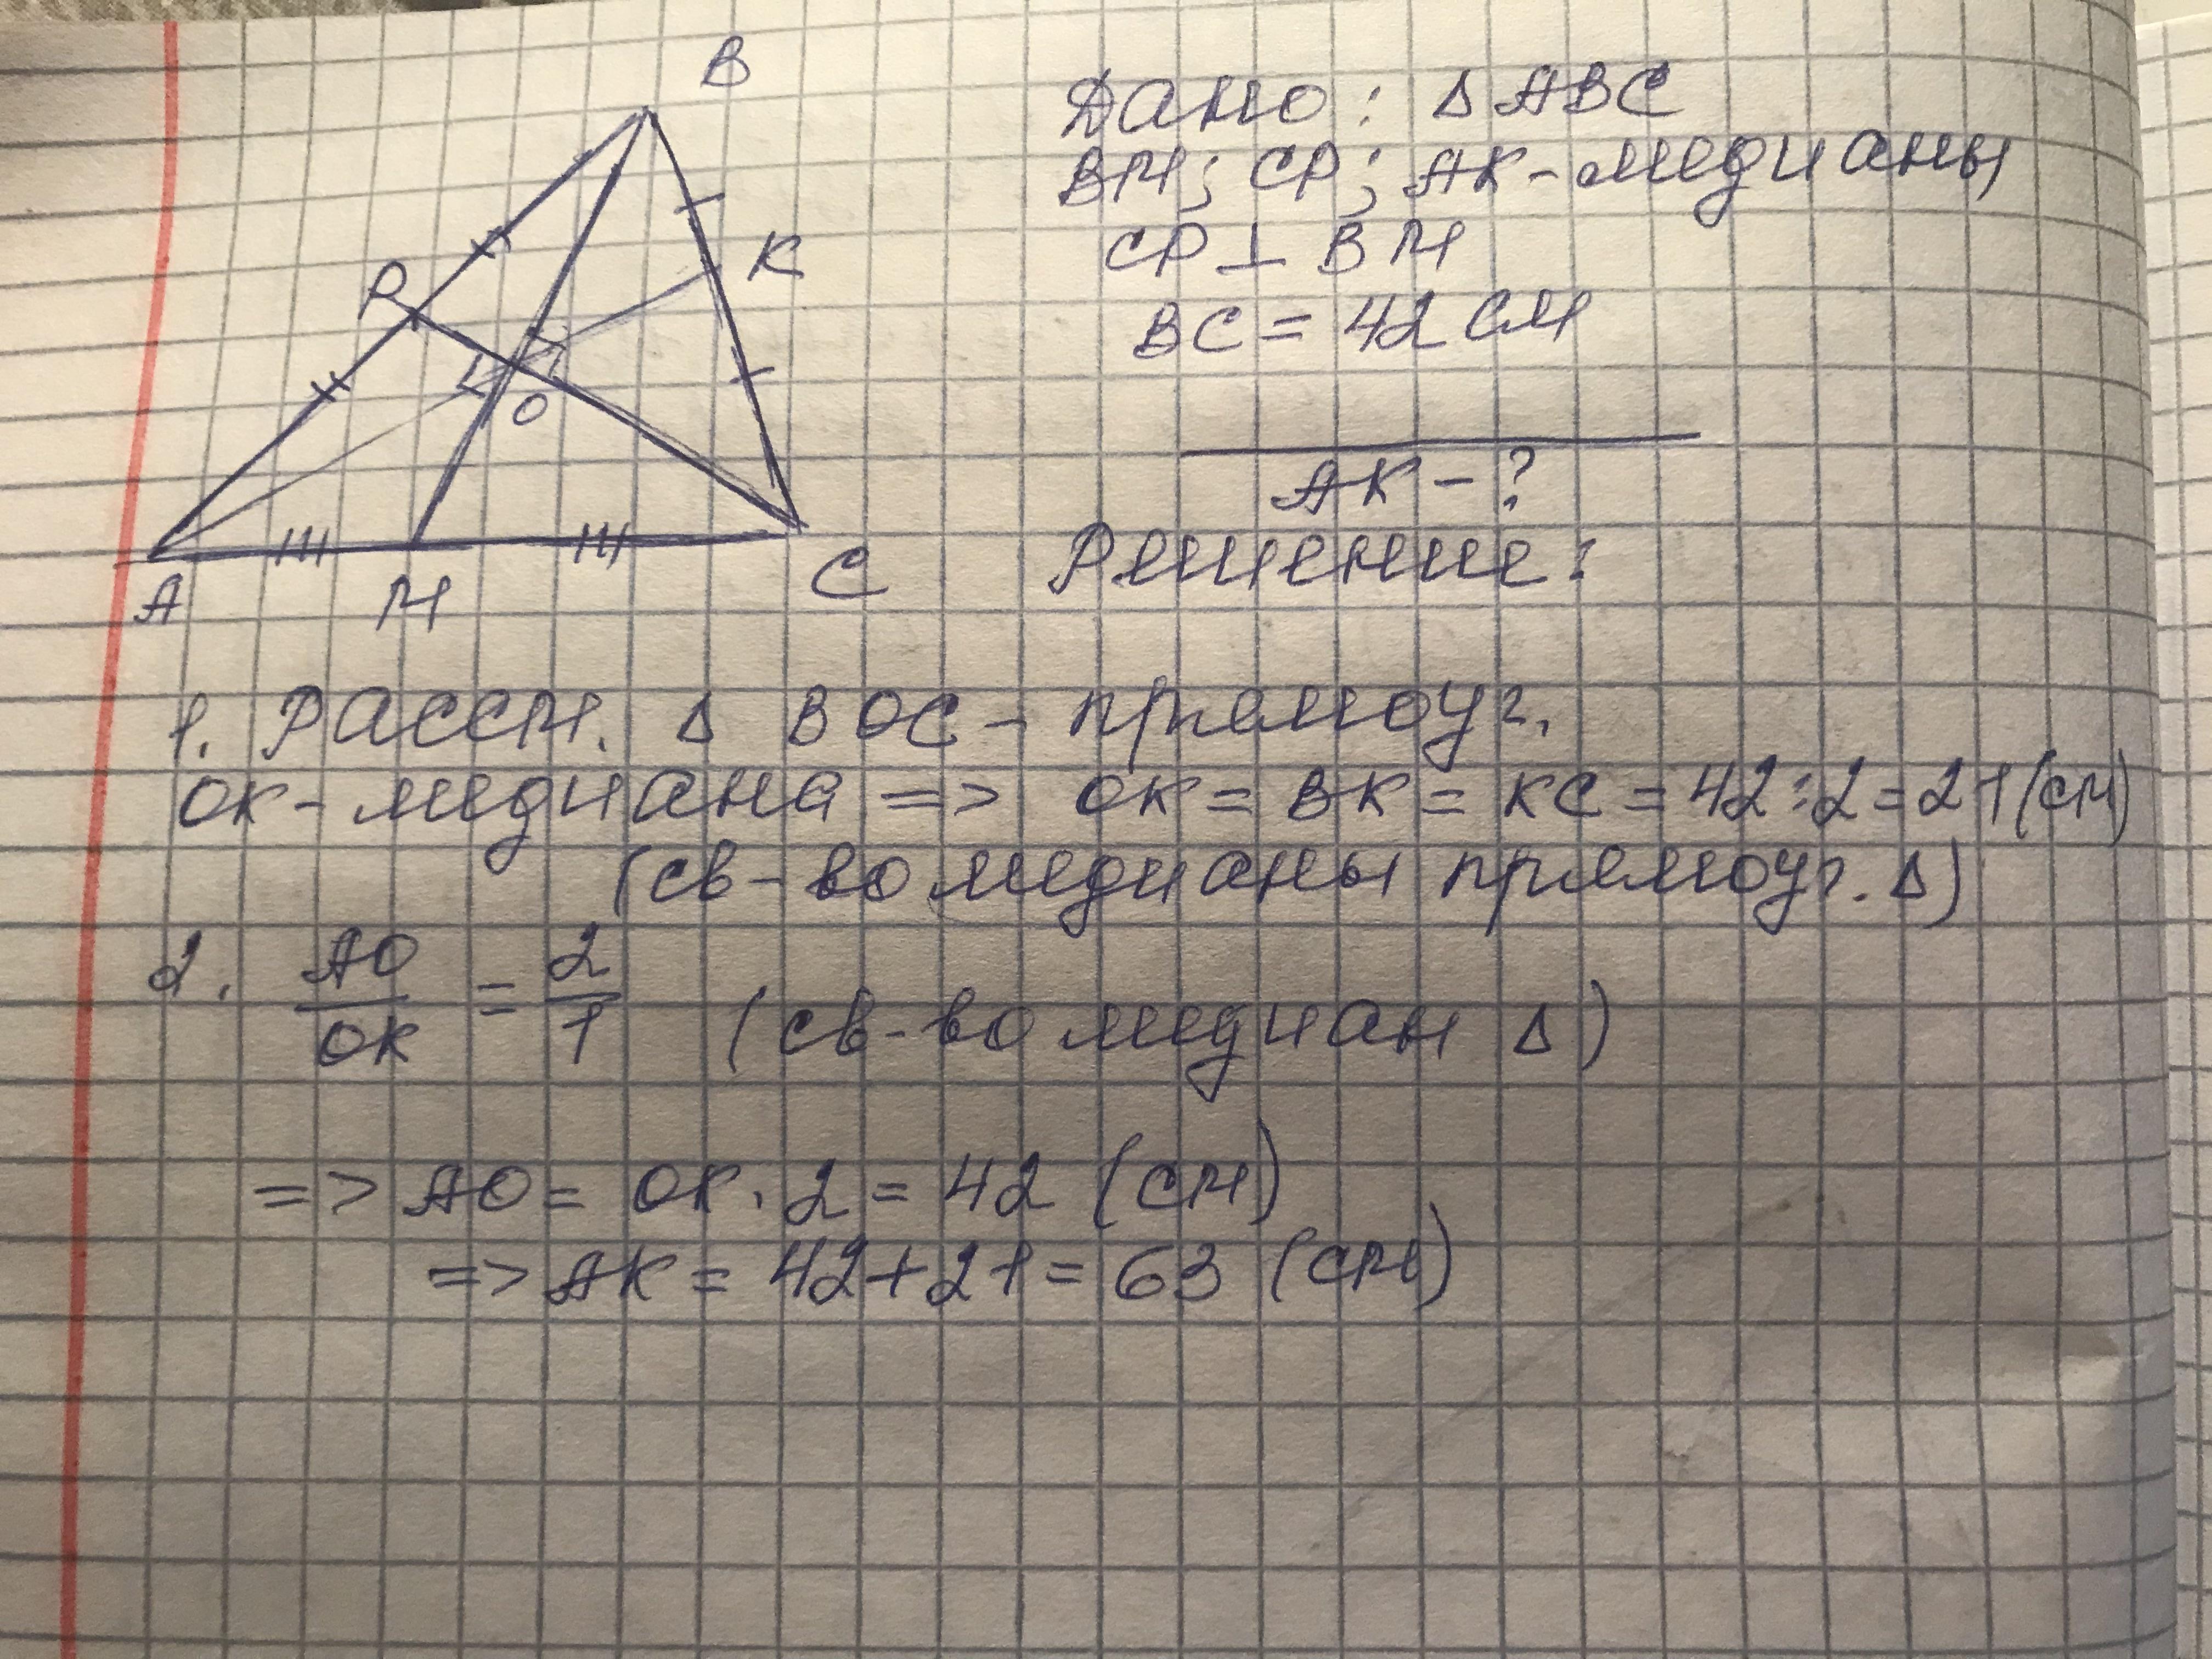 B
P
K
O
A
M
C
Дано: Δ ABC
BM; CP; AK - медианы
CP ⊥ BM
BC = 42 см
AK - ?
Решение:
1. Рассм. Δ BOC - прямоуг.
OK - медиана => OK = BK = KC = 42:2 = 21 (см)
(св-во медианы прямоуг. Δ)
2. AO/OK = 2/1 (св-во медиан Δ)
=> AO = OK · 2 = 42 (см)
=> AK = 42 + 21 = 63 (см)